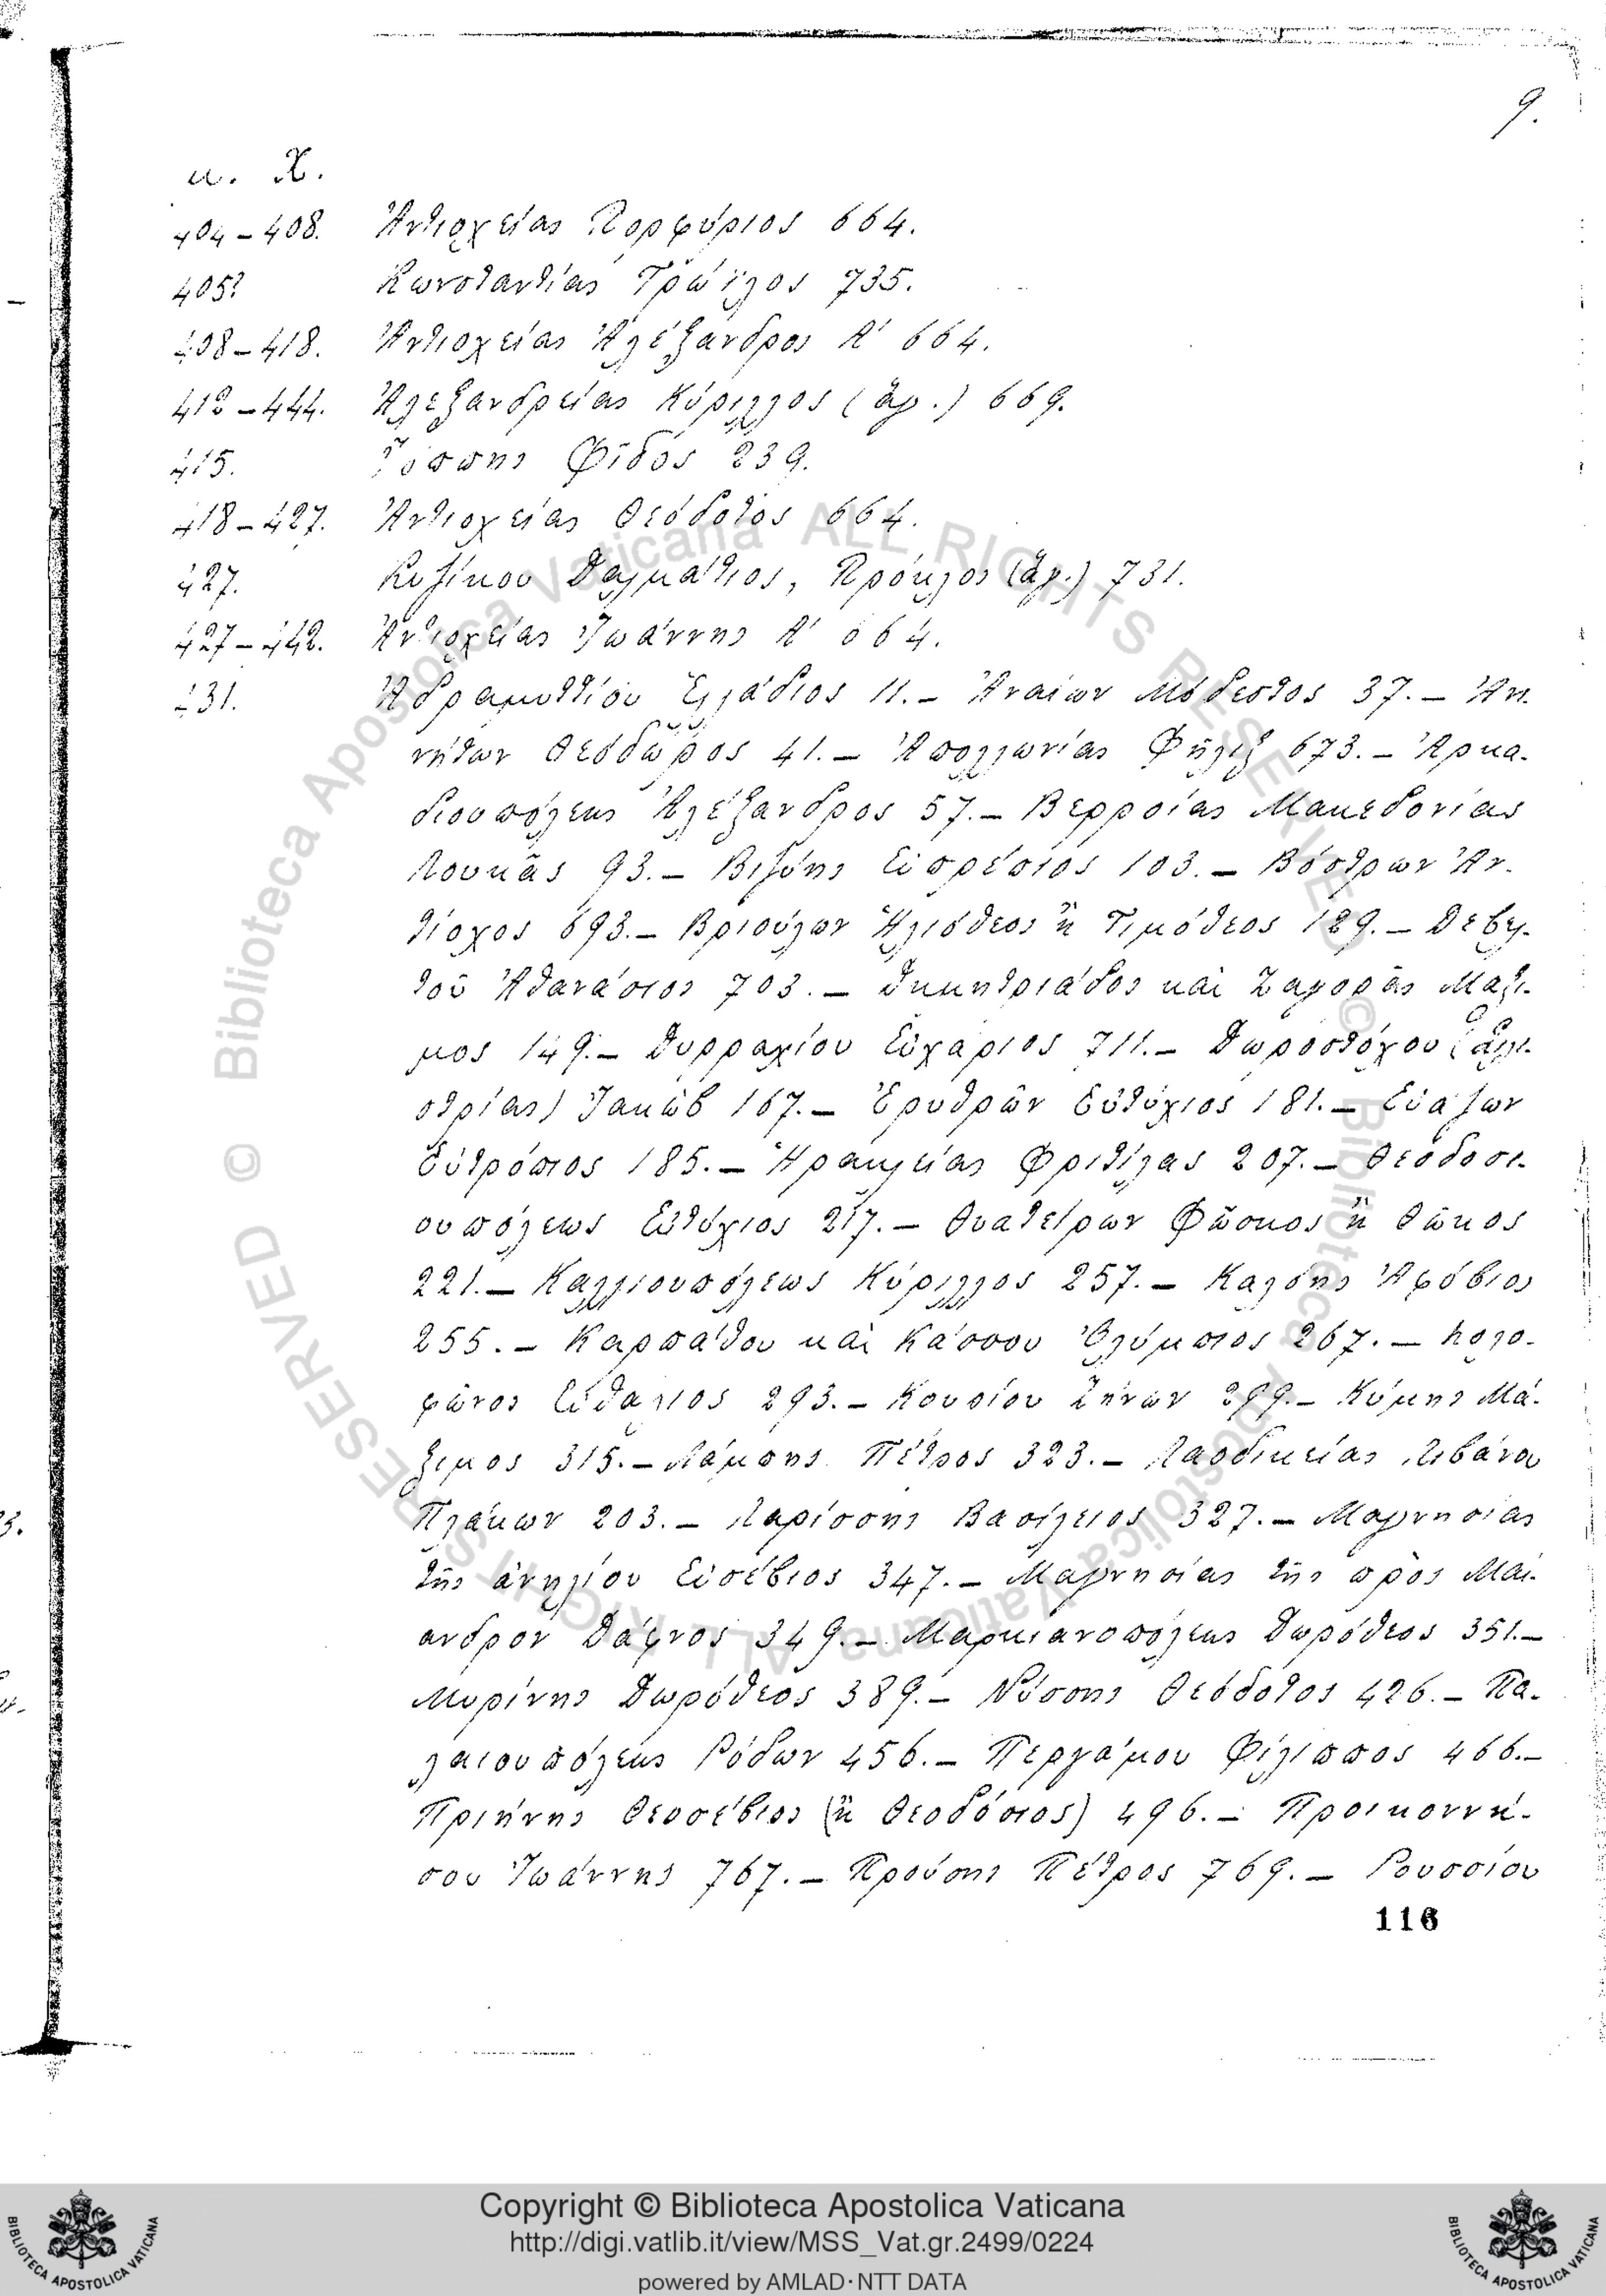 9.
μ. Χ.
404-408. Ἀντιοχείας Πορφύριος 664.
405? Κωνσταντίας Τρώϊλος 735.
408-418. Ἀντιοχείας Ἀλέξανδρος Α' 664.
412-444. Ἀλεξανδρείας Κύριλλος (ἅγ.) 669.
415. Ἰόππης Φῖδος 239.
418-427. Ἀντιοχείας Θεόδοτος 664.
427. Κυζίκου Δαλμάτιος, Πρόκλος (ἅγ.) 731.
427-442. Ἀντιοχείας Ἰωάννης Α' 664.
431. Ἀδραμυττίου Ἑλλάδιος 11.- Ἀναίων Μόδεστος 37.- Ἀν-
νήτων Θεόδωρος 41.- Ἀπολλωνίας Φῆλιξ 673.- Ἀρκα-
διουπόλεως Ἀλέξανδρος 57.- Βερροίας Μακεδονίας
Λουκᾶς 93.- Βιζύης Εὐπρέπιος 103.- Βόστρων Ἀν-
τίοχος 693.- Βριούλων Ἡλιόθεος ἢ Τιμόθεος 129.- Δεβελ-
τοῦ Ἀθανάσιος 703.- Δημητριάδος καὶ Ζαγορᾶς Μάξι-
μος 149.- Δυρραχίου Εὐχάριος 711.- Δωροστόλου
στρίας) Ἰακὼβ 167.- Ἐρυθρῶν Εὐτύχιος 181.- Εὐάζων
Εὐτρόπιος 185.- Ἡρακλείας Φριτίλας 207.- Θεοδοσι-
ουπόλεως Εὐτύχιος 217.- Θυατείρων Φῶσκος ἢ Θῶκος
221.- Καλλιουπόλεως Κύριλλος 257.- Καλόης Ἀφόβιος
255.- Καρπάθου καὶ Κάσσου Ὀλύμπιος 267.- Κολο-
φῶνος Εὐθάλιος 293.- Κουσίου Ζήνων 299.- Κύμης Μά-
ξιμος 315.- Λάμπης Πέτρος 323.- Λαοδικείας Λιβάνου
Πλάκων 203.- Λαρίσσης Βασίλειος 327.- Μαγνησίας
τῆς ἀνηλίου Εὐσέβιος 347.- Μαγνησίας τῆς πρὸς Μαί-
ανδρον Δάφνος 349.- Μαρκιανοπόλεως Δωρόθεος 351.-
Μυρίνης Δωρόθεος 389.- Νύσσης Θεόδοτος 426.- Πα-
λαιουπόλεως Ρόδων 456.- Περγάμου Φίλιππος 466.-
Πριήνης Θεοσέβιος (ἢ Θεοδόσιος) 496.- Προικοννή-
σου Ἰωάννης 767.- Προύσης Πέτρος 769.- Ρουσσίου
116
Copyright © Biblioteca Apostolica Vaticana
http://digi.vatlib.it/view/MSS_Vat.gr.2499/0224
powered by AMLAD·NTT DATA